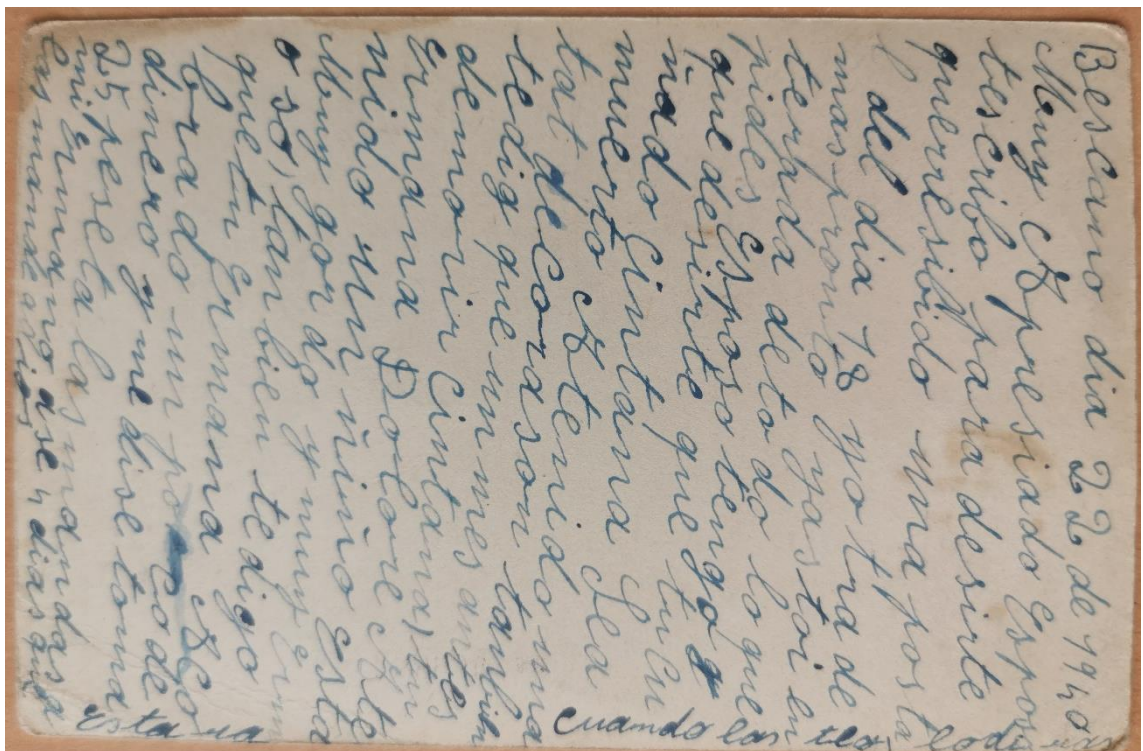 Bescano dia 22 de 1940
Muy Apresiado Esposo
tescribo para desirte
querresibido una posta
l del dia 18 yotra de
mas pronto yastoi en
terada detodo loque
pides Esposo tengo q
que desirte que tu cu
ñado Cintana Sea
muerto Atenido un a
tat decorason tambien
tedig que un mes antes
demorir Cintana, tu
Ermana Dolore A te
nido un niño Esta
Muy gordo y muy erm
o so, tanbien tedigo
quetu Ermana Aco
brado un po co de
dinero y me dise toma
25 peseta las mandas a
mi Ermano ase 4 dias que
las mande a
esta va cuando las